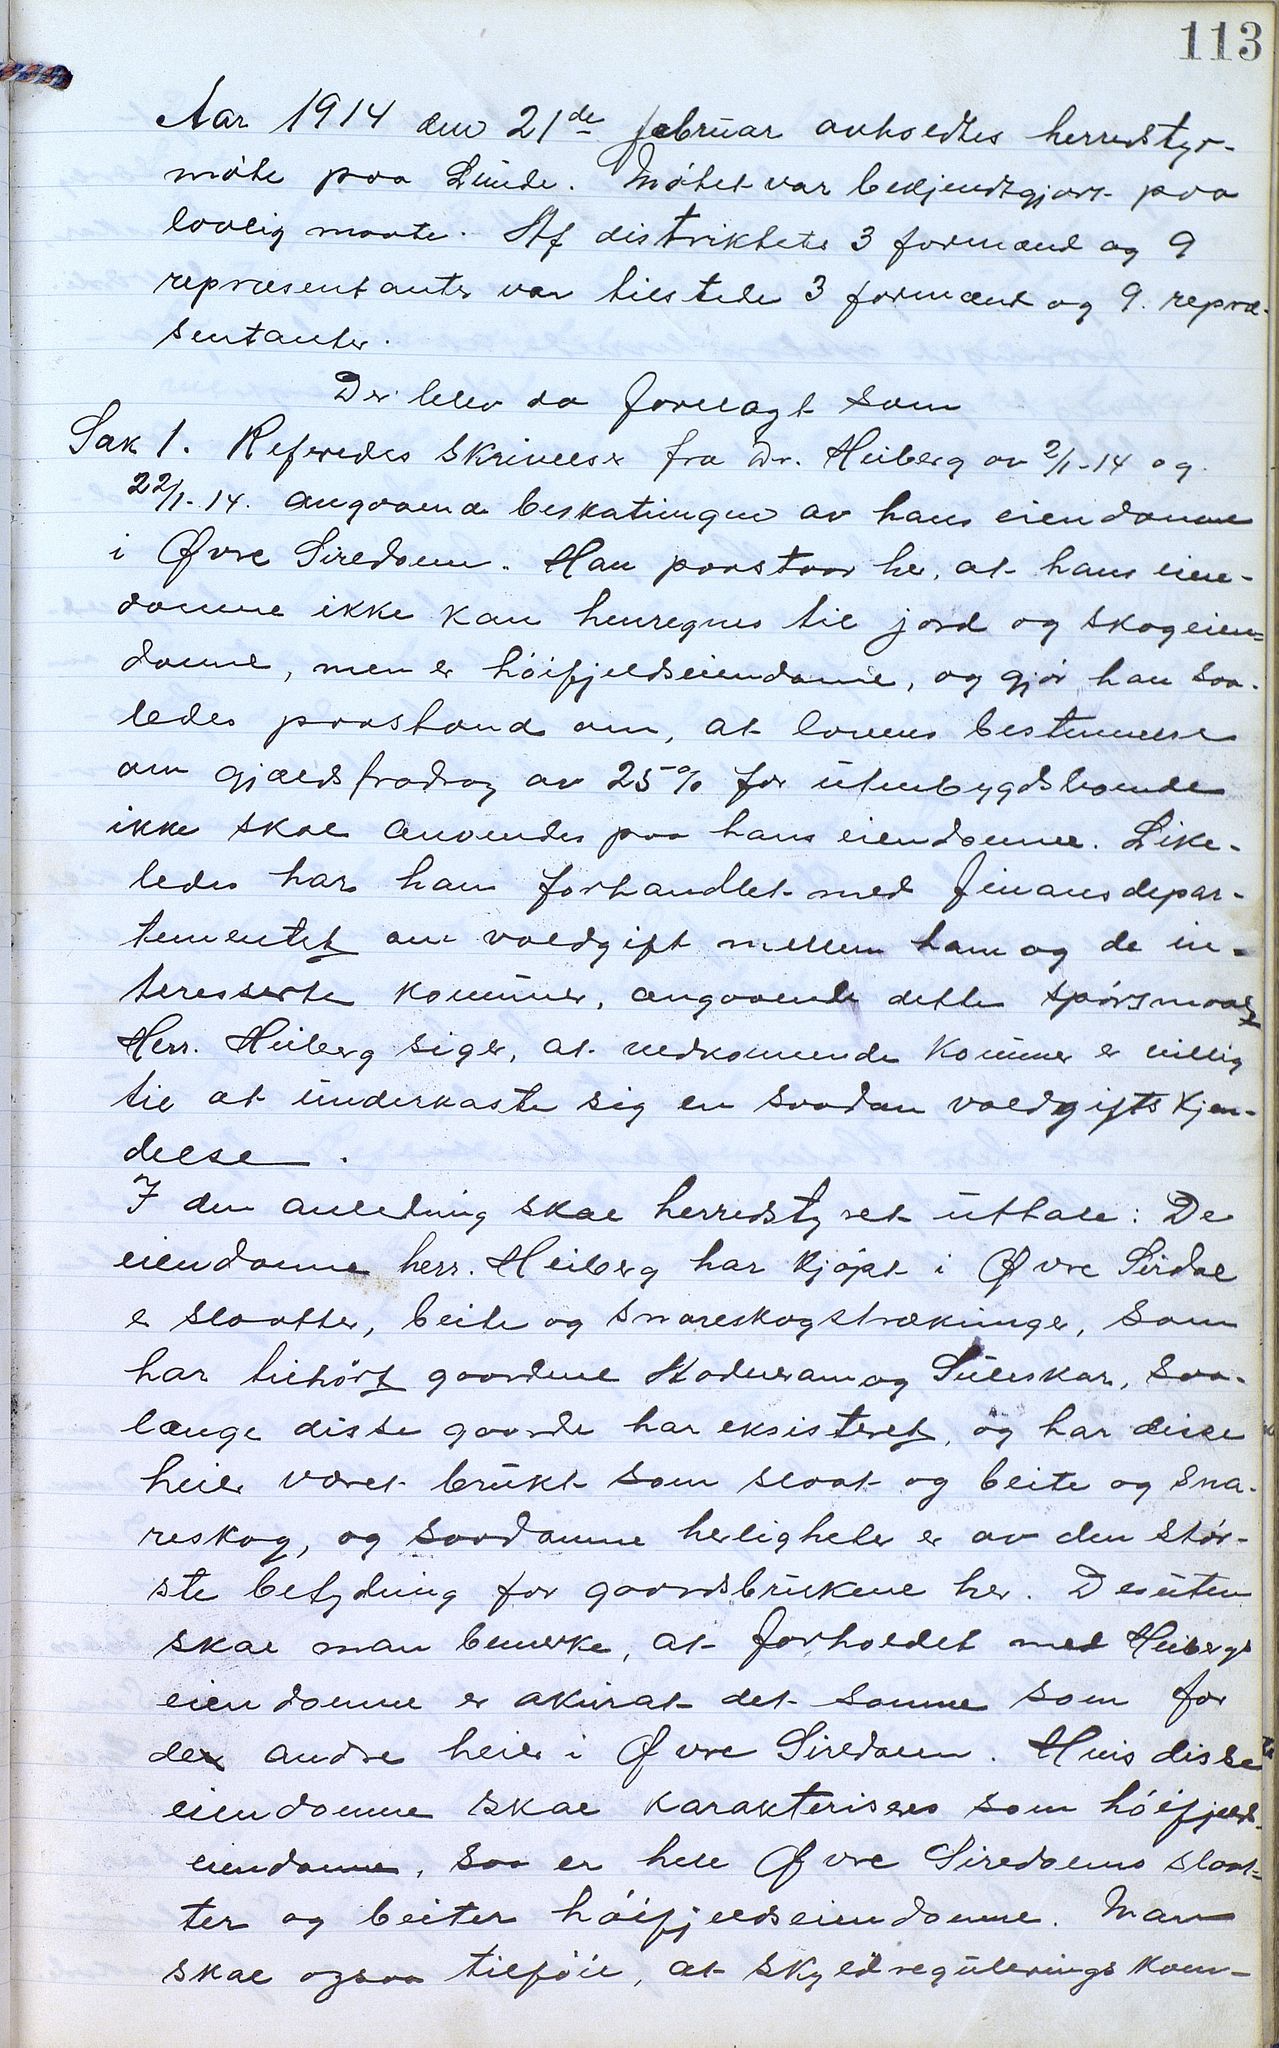 113
Aar 1914 den 21de februar avholdtes herredstyr-
møte paa Linde. Møtet var bekjendtgjort paa
lovlig maate. Af distriktets 3 formænd og 9
repræsentanter var tilstede 3 formænd og 9. repræ-
sentanter.
Der blev da forelagt som
Sak 1. Refereredes skrivelser fra Dr. Heiberg av 2/1-14 og
22/1-14. angaaende beskatningen av hans eiendomme
i Øvre Siredalen. Han paastaar her, at hans eien-
domme ikke kan henregnes til jord og skogeien-
domme, men er høifjeldseiendomme, og gjør han saa-
ledes paastand om, at lovens bestemmelse
om gjældsfradrag av 25% for utenbygdsboende
ikke skal anvendes paa hans eiendomme. Like-
ledes har han forhandlet med finansdepar-
tementet om voldgift mellem ham og de in-
teresserte kommuner, angaaende dette spørsmaal
Herr. Heiberg siger, at vedkommende kommuner er villig
til at underkaste sig en saadan voldgifts kjen-
delse.
I den anledning skal herredstyret uttale: De
eiendomme herr. Heiberg har kjøpt i Øvre Sirdal
er slaatter, beite og snareskogstrækninger, som
har tilhørt gaardene Kodneram og Suleskar, saa-
længe disse gaarde har eksisteret, og har disse
heier været brukt som slaat og beite og sna-
reskog, og saadanne herligheter er av den stør-
ste betydning for gaardsbrukene her. Desuten
skal man bemerke, at forholdet med Heibergs
eiendomme er akurat det samme som for
de andre heier i Øvre Siredalen. Hvis disse
eiendomme skal karakteriseres som høifjelds-
eiendomme, saa er hele Øvre Siredalens slaat-
ter og beiter høifjeldseiendomme. Man
skal ogsaa tilføie, at skyldregulerings kom-